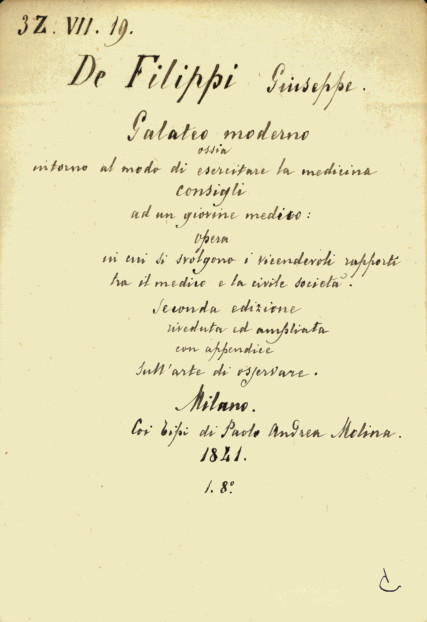 3Z. VII. 19.
De Filippi Giuseppe.
Galateo moderno
ossia
intorno al modo di esercitare la medicina
consigli
ad un giovine medico:
opera
in cui si svolgono i vicendevoli rapporti
tra il medico e la civile società.
Seconda edizione
riveduta ed ampliata
con appendice
sull'arte di osservare.
Milano.
Coi Tipi di Paolo Andrea Molina.
1841.
1. 8º